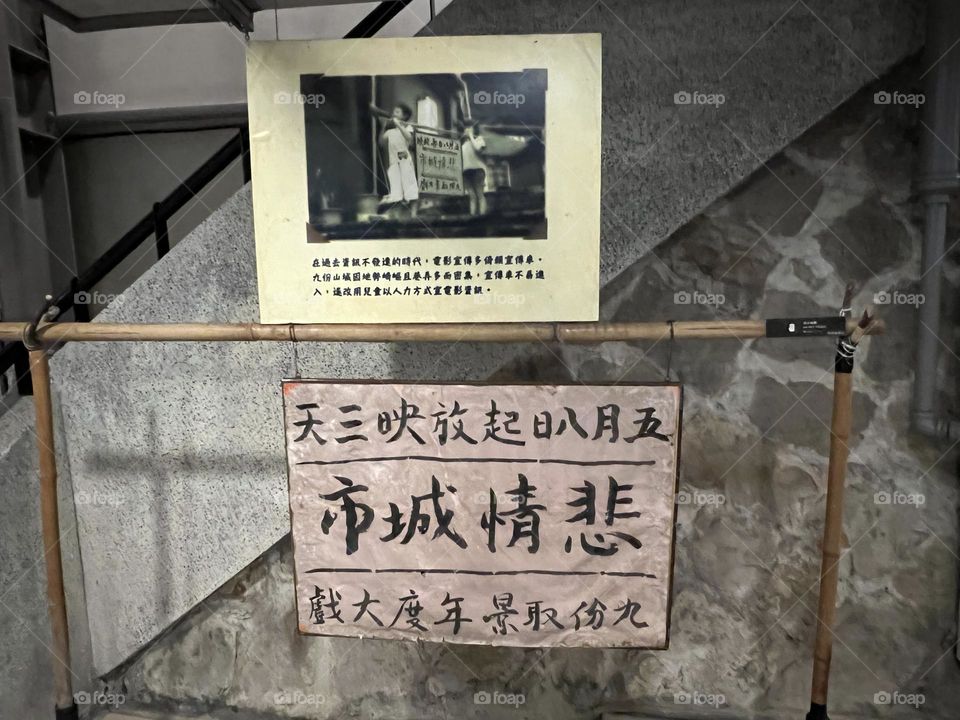 五月八日起放映
悲情城市
在過去資訊不發達的時代，電影宣傳多倚賴宣傳車。
九份山城因地勢崎嶇且巷弄多而密集，宣傳車不易進
入，遂改用兒童以人力方式宣電影資訊。
五月八日起放映三天
悲情城市
九份取景年度大戲
foap